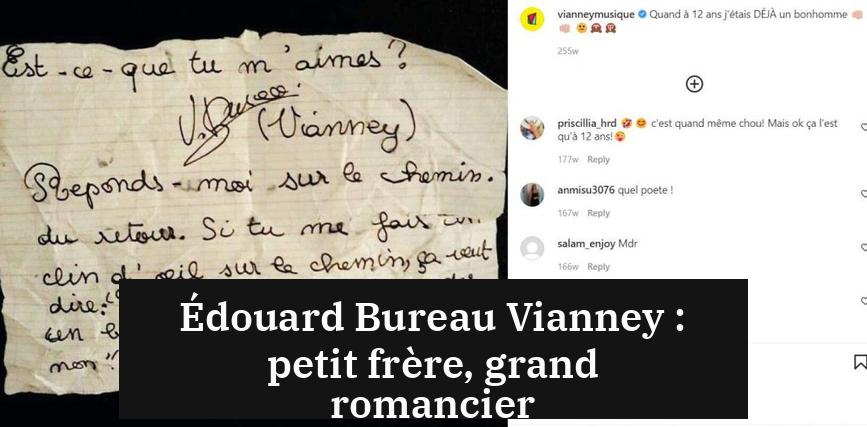 Est-ce-que tu m'aimes?
(Vianney)
Reponds-moi sur le chemin.
du retour. Si tu me fais un
clin d'œil sur le chemin, ça veut
dire:
un
non"
vianneymusique Quand à 12 ans j'étais DÉJÀ un bonhomme
255w
priscillia_hrd c'est quand même chou! Mais ok ça l'est
qu'à 12 ans!
177w Reply
anmisu3076 quel poete !
167w Reply
salam_enjoy Mdr
166w Reply
Édouard Bureau Vianney :
petit frère, grand
romancier